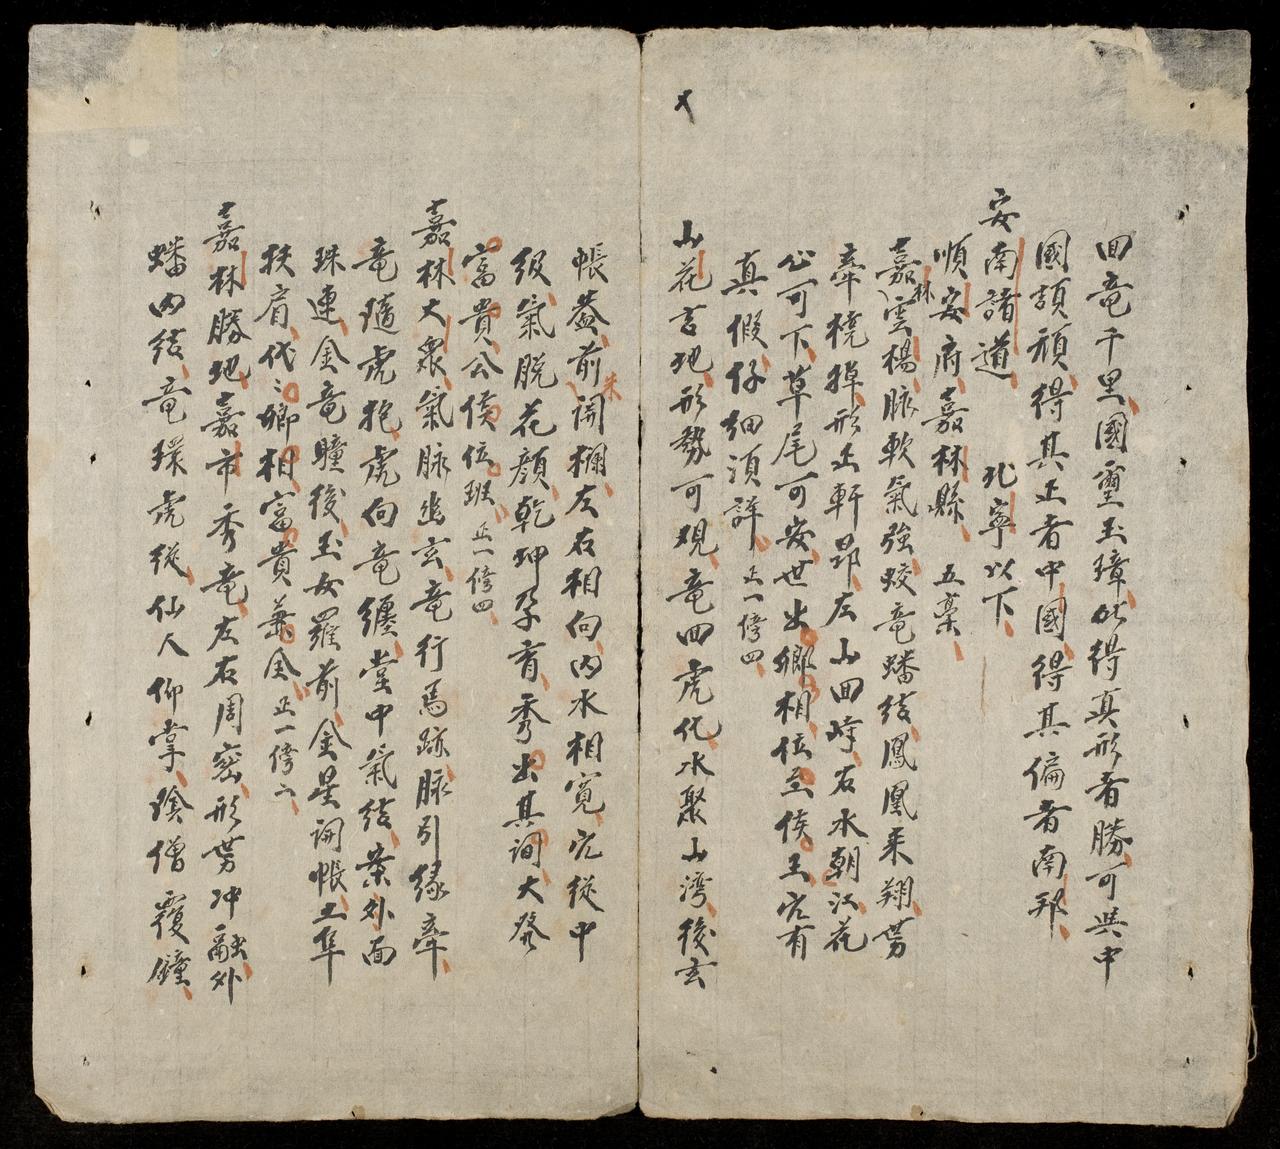 回竜千里國璽玉璋此得真形者勝可與中
國頡頏得其正者中國得其偏者南邦
安南諸道 北寧以下
順安府嘉林縣 五藁
嘉林雲楊脉軟氣強蛟竜蟠結鳳凰来翔勢
牽撓掉形止軒昂左山回峙右水朝江花
心可下草尾可安世出卿相位至侯王穴有
真假仔細須詳 正一傍四
山花言地形勢可观竜回虎化水聚山湾後玄
帳蓋前朱開欄左右相向内水相寛穴從中
级氣脱花顔乾坤孕育秀出其间大發
富貴公侯位班 正一傍四
嘉林大衆氣脉幽玄竜行馬跡脉引缘牽
竜隨虎抱虎向竜纏堂中氣结案外面
珠連金竜瞳後玉女羅前金星開帳土隼
扶肩代〻卿相富貴兼全 正一傍六
嘉林勝地嘉市秀竜左右周密形勢冲融外
蟠内结竜環虎從仙人仰掌陰僧覆鐘